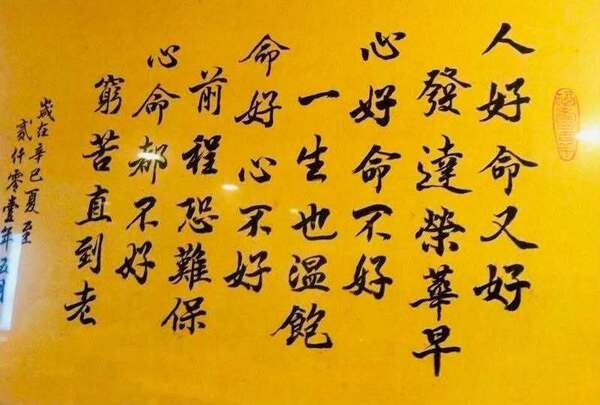 人好命又好
發達榮華早
心好命不好
一生也溫飽
命好心不好
前程恐難保
心命都不好
窮苦直到老
歲在辛巳夏至
貳仟零壹年五月